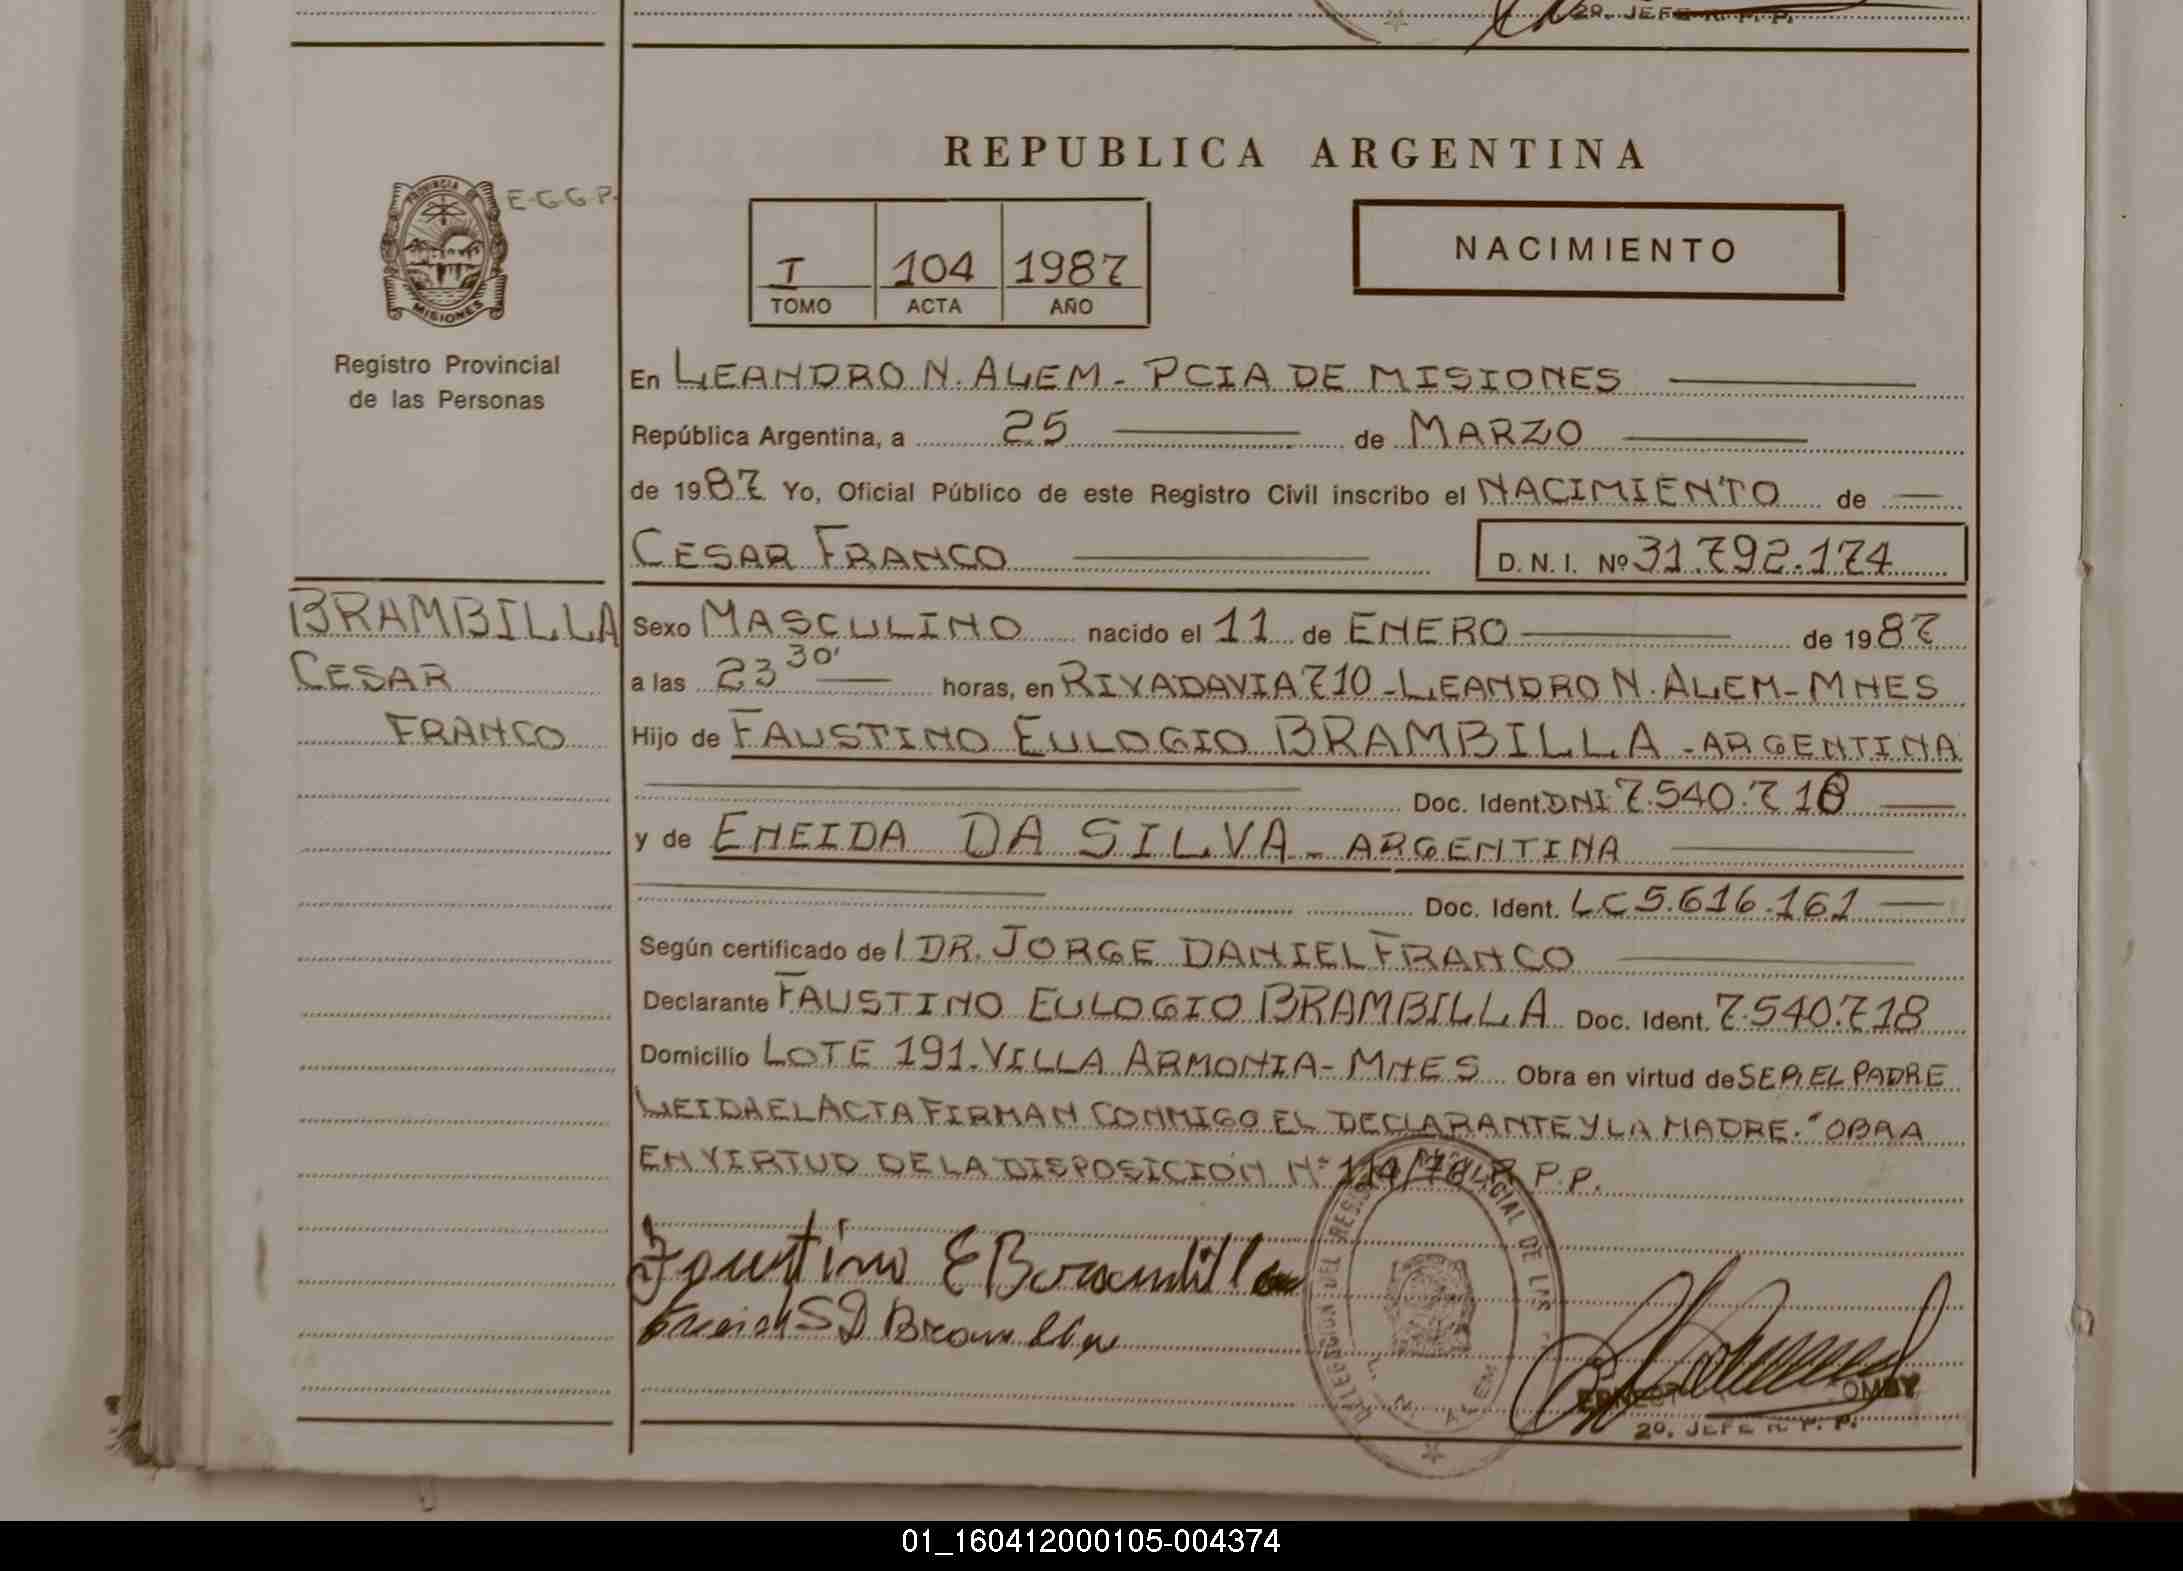 2o. JEFE R. P. P.
REPUBLICA ARGENTINA
PROVINCIA DE
MISIONES
E.G.G.P.
T 104 1987
TOMO ACTA AÑO
NACIMIENTO
Registro Provincial
de las Personas
En LEANDRO N. ALEM - PCIA DE MISIONES
República Argentina, a 25 de MARZO
de 1987 Yo, Oficial Público de este Registro Civil inscribo el NACIMIENTO de
CESAR FRANCO D. N. I. Nº 31.792.174
BRAMBILLA
CESAR
FRANCO
Sexo MASCULINO nacido el 11 de ENERO de 1987
a las 23 30' horas, en RIVADAVIA 710 - LEANDRO N. ALEM - MNES
Hijo de FAUSTINO EULOGIO BRAMBILLA - ARGENTINA
Doc. Ident. DNI 7.540.718
y de ENEIDA DA SILVA - ARGENTINA
Doc. Ident. LC 5.616.161
Según certificado de l DR. JORGE DANIEL FRANCO
Declarante FAUSTINO EULOGIO BRAMBILLA Doc. Ident. 7.540.718
Domicilio LOTE 191. VILLA ARMONIA - MNES Obra en virtud de SER EL PADRE
LEIDA EL ACTA FIRMAN CONMIGO EL DECLARANTE Y LA MADRE. "OBRA
EN VIRTUD DE LA DISPOSICION Nº 114/78 R. P. P.
Faustino E Brambilla
S D Brambilla
DELEGACION DEL REGISTRO PROVINCIAL DE LAS
L. N. ALEM
2o. JEFE R. P. P.
01_160412000105-004374